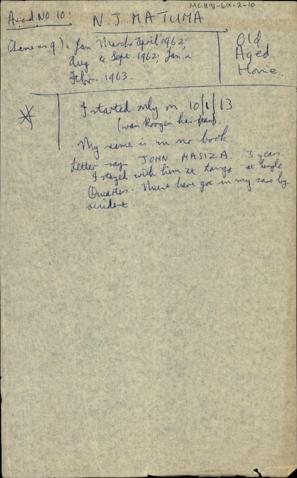 MCH91-6.1.2-10
Accd NO 10. N. J. MATUMA
Jan March April 1962
Aug & Sept. 1962, Jan &
Febr. 1963.
Old
Aged
Home
I started only on 10/1/63
My name is in no book
Letter says JOHN MASIZA. 3 years
I stayed with him at Langa at Single
Quarters. Must have got in my case by
accident